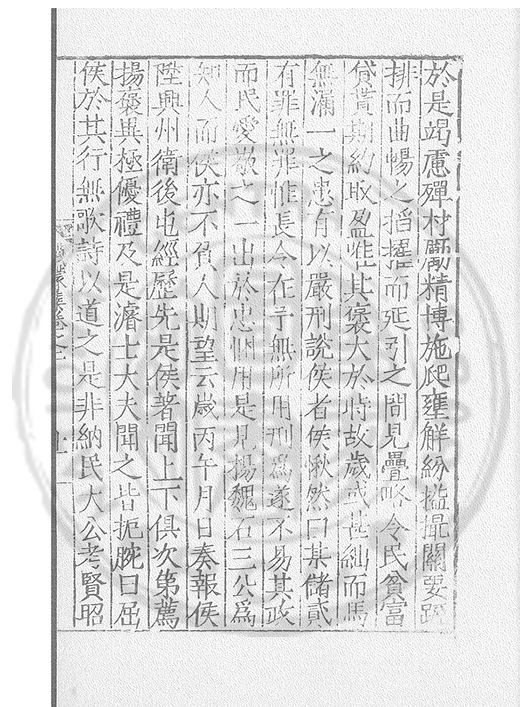 於是竭慮殫村勵精博施爬壅觧紛搤撮關要疏
排而曲暢之搯擢而延引之間見疊略令民貧富
貸貰期約取盈惟其褒大於時故歲或甚絀而馬
無漏一之患有以嚴刑說侯者侯愀然曰某儲貳
有罪無罪惟長令在乎無所用刑爲遂不易其政
而民愛敬之一出於忠悃用是見楊魏石三公爲
知人而侯亦不負人期望云歲丙午月日奏報侯
陞興州衛後屯經歷先是侯著聞上下俱次第薦
揚褒異極優禮及是濬士大夫聞之皆扼腕曰屈
侯於其行無歌詩以道之是非納民大公考賢昭